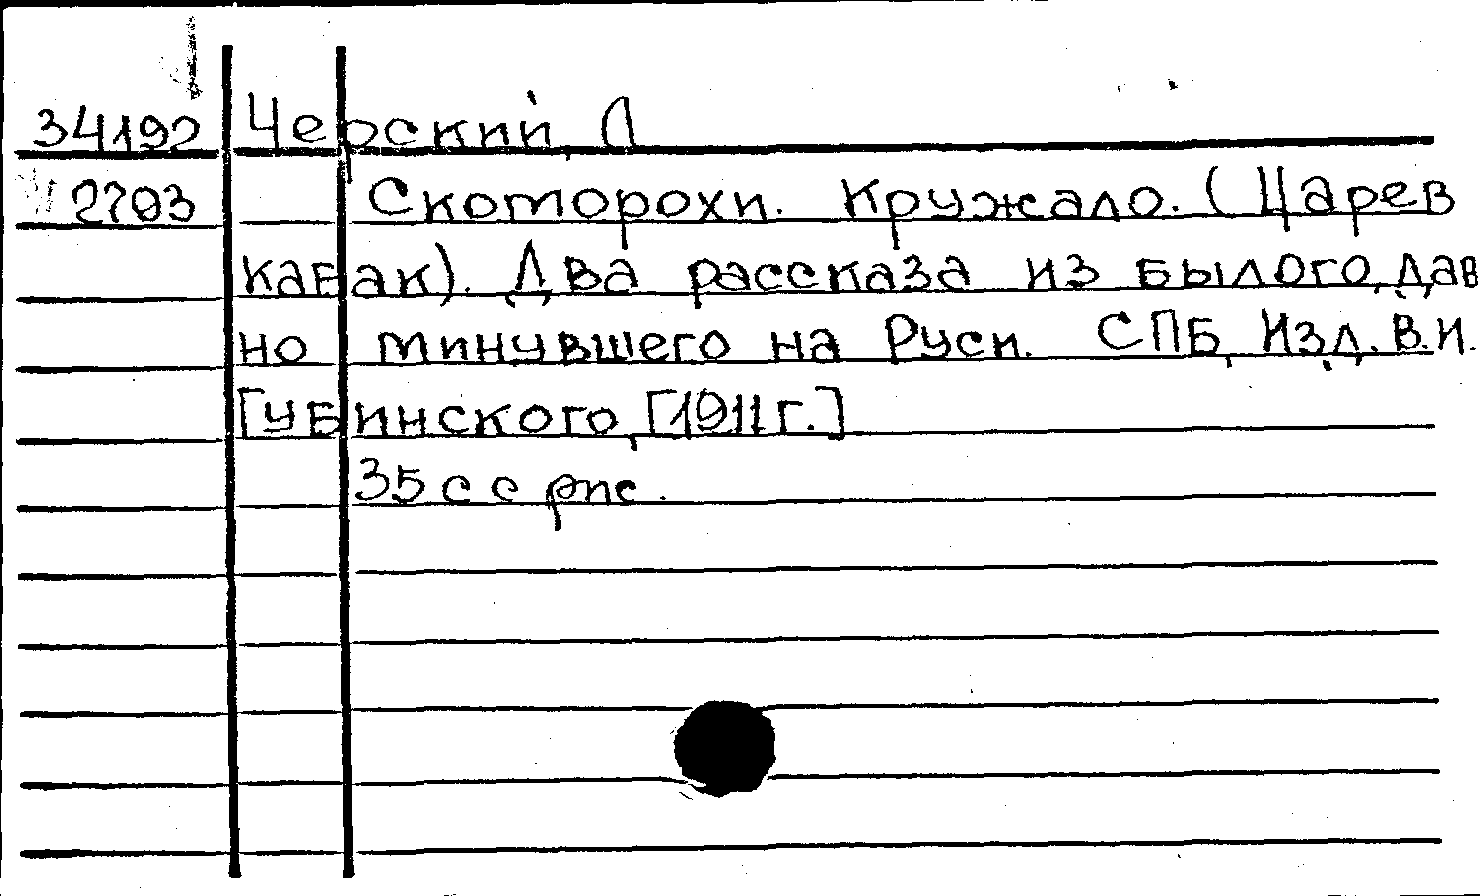 34192 Черский, Л
2703 Скоморохи. Кружало. (Царев
кабак). Два рассказа из былого, дав
но минувшего на Руси. СПБ, Изд. В.И.
Губинского, [1911г.]
35 с с рис.